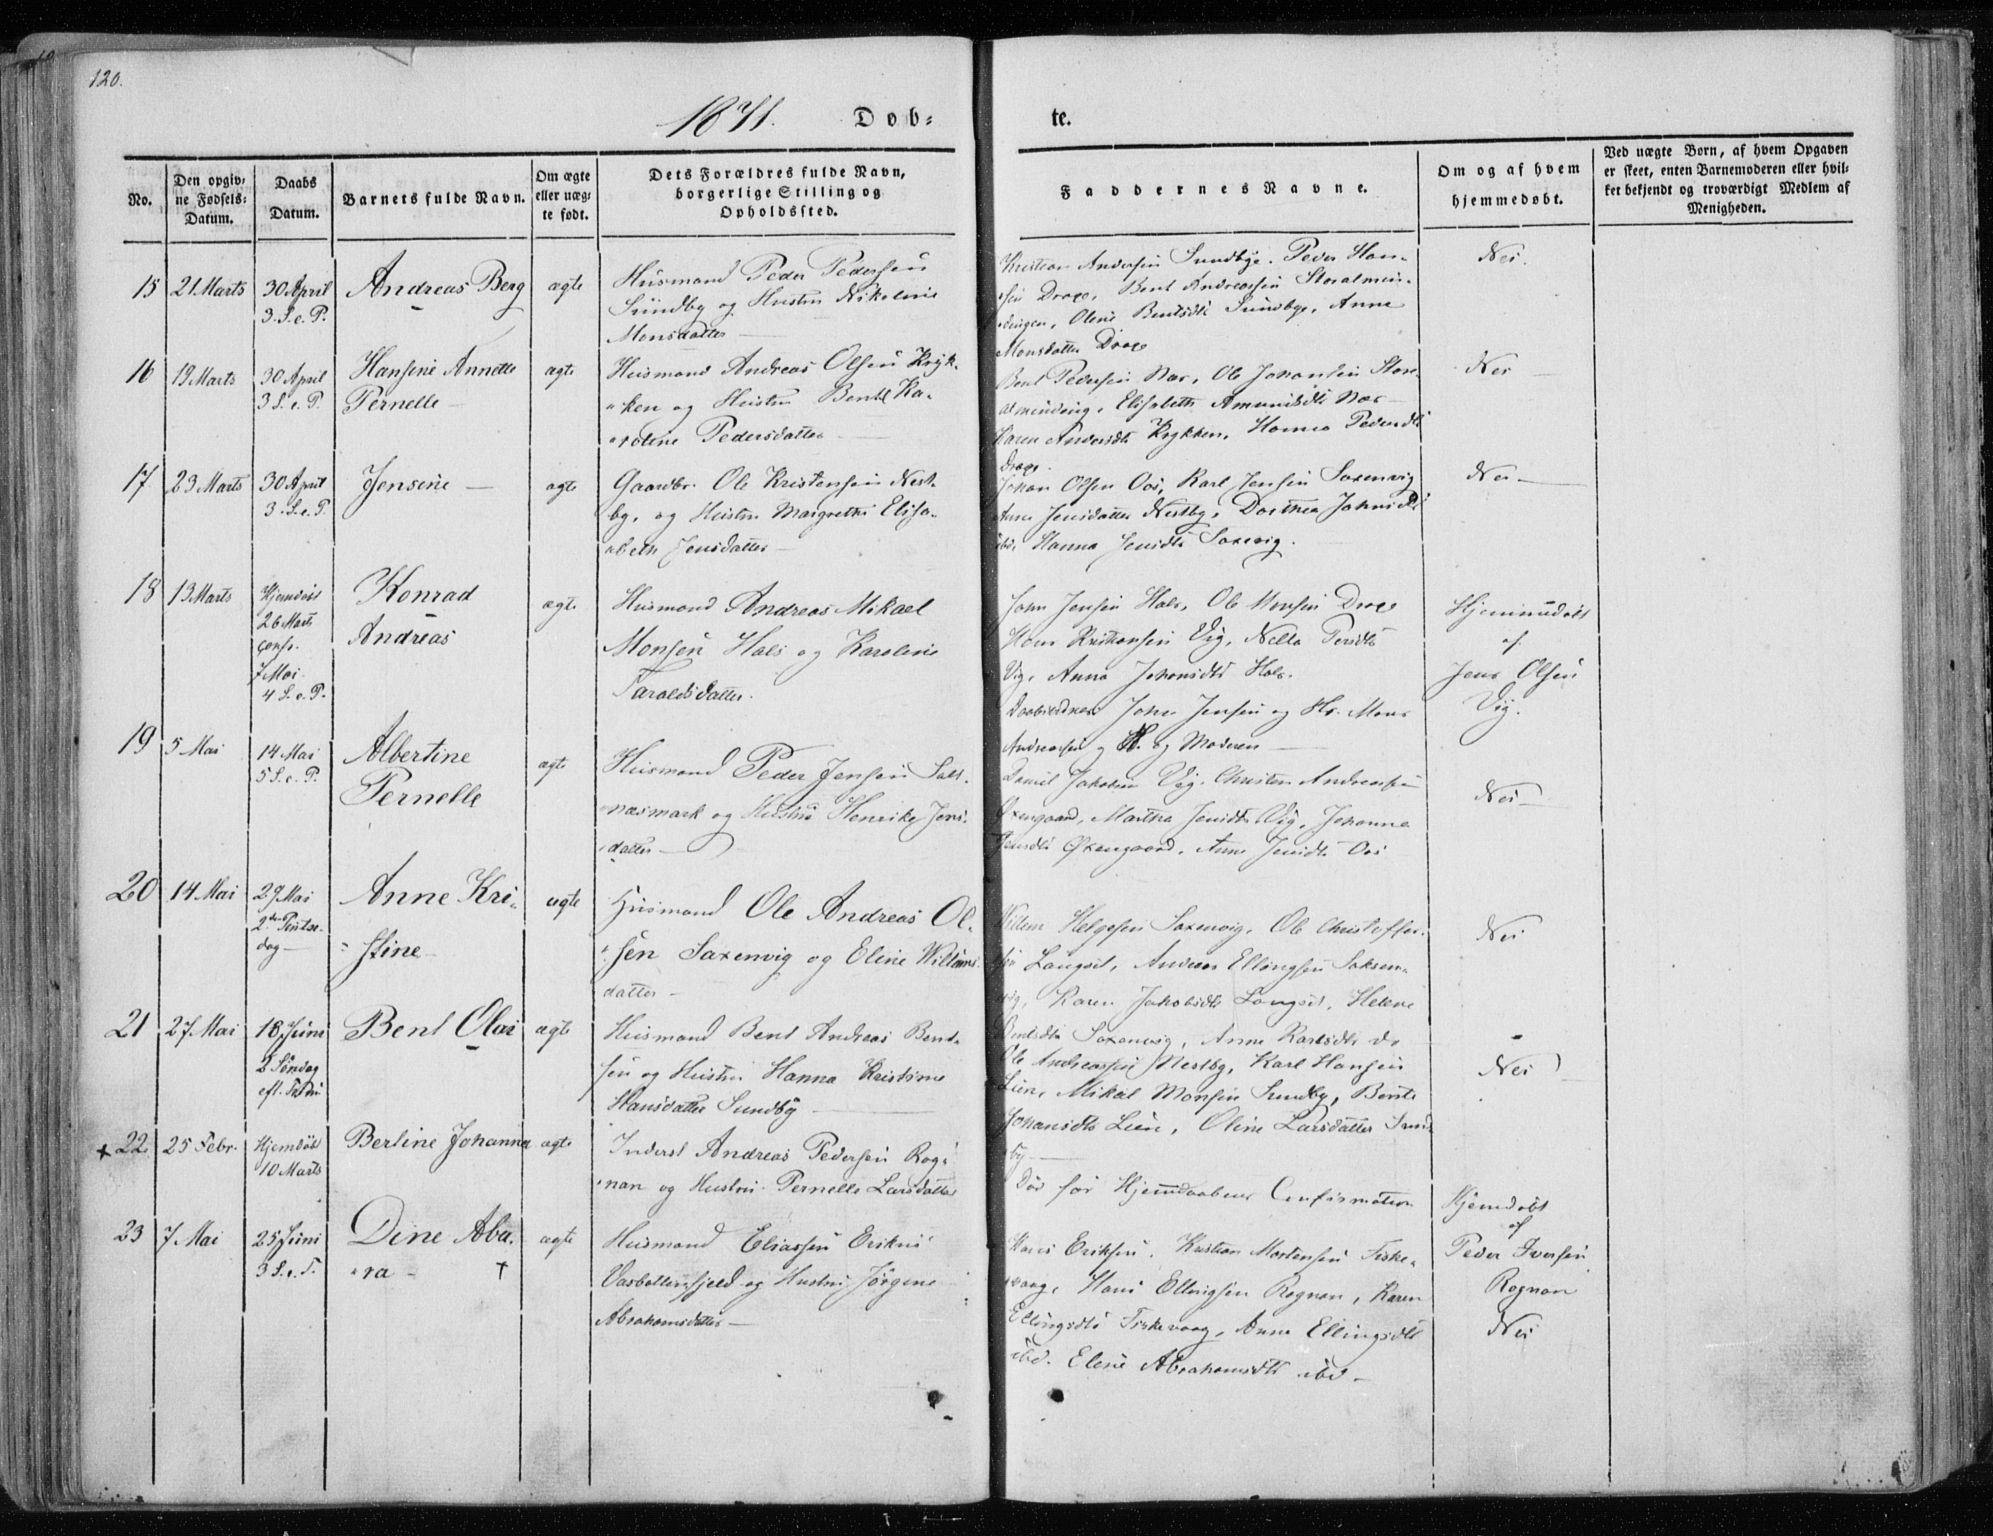 120.
1871. Døb-
te.
No.
Den opgiv-
ne Fødsels-
Datum.
Daabs
Datum.
Barnets fulde Navn.
Om ægte
eller uæg-
te født.
Dets Forældres fulde Navn,
borgerlige Stilling og
Opholdssted.
Faddernes Navne.
Om og af hvem
hjemmedøbt.
Ved uægte Børn, af hvem Opgaven
er skeet, enten Barnemoderen eller hvil-
ket bekjendt og troværdigt Medlem af
Menigheden.
15 21 Marts 30 April
3. S. e. P.
Andreas Berg
ægte
Husmand Peder Pedersen
Sundby og Hustru Nikoline
Monsdatter
Kristian Andersen Sundbye. Peder Han-
sen Droge, Bent Andreassen Storalmin-
dingen, Oline Bentsdtr Sundbye, Anne
Monsdatter Droge
Nei.
16 19 Marts 30 April
3 S. e. P.
Hansine Annette
Pernelle
ægte
Husmand Andreas Olsen Kryk-
ken og Hustru Bentl Ka-
roline Pedersdatter
Bent Pedersen Næs, Ole Johansen Stor-
alminding, Elisabeth Amundsdtr Næs
Karen Andersdtr Krykken, Hanna Pedersdtr
Droge.
Nei
17 23 Marts 30 April
3. S. e. P.
Jensine
ægte
Gaardbr. Ole Kristensen Nest-
by, og Hustru Margrethe Elisa-
abeth Jensdatter
Johan Olsen Oos, Karl Jensen Saxenvig
Anne Jensdatter Nestby, Dorthea Johnsdtr
ibd. Hanna Jensdtr Saxevig.
Nei
18 13 Marts Hjemdøbt
26 Marts
confr.
7 Mai
4 S. e. P.
Konrad
Andreas
ægte
Husmand Andreas Mikael
Monsen Hals og Karoline
Taraldsdatter.
John Jensen Hals, Ole Monsen Droge
Hans Kristiansen Vig, Nella Persdtr
Vig, Anna Johansdtr Hals.
Daabsvidner John Jensen og Hr. Mons
Andreassen og H. og Moderen
Hjemmedøbt
af
Jens Olsen
Vig.
19 5 Mai 14 Mai
5 S. e. P.
Albertine
Pernelle
ægte
Husmand Peder Jensen Salt-
næsmark og Hustru Henrike Jens-
datter
Daniel Jakobsen Vig. Christen Andreassen
Øxengaard, Martha Jensdtr Vig, Johanna
Jensdtr Øxengaard, Anne Jensdtr Oos
Nei
20 14 Mai 29 Mai
2den Pintse-
dag
Anne Kri-
stine
ægte
Husmand Ole Andreas Ol-
sen Saxenvig og Eline Willums-
datter
Willum Helgesen Saxenvig, Ole Christoffer-
sen Langset, Andreas Ellingsen Saksen-
vig, Karen Jakobsdtr Langset, Helene
Bentsdtr Saxenvig, Anne Karlsdtr do
Nei
21 27. Mai 18 Juni
2 Søndag
eft. Trin.
Bent Olai
ægte
Husmand Bent Andreas Bent-
sen og Hustru Hanna Kristine
Hansdatter Sundby
Ole Andreassen Nestby, Karl Hansen
Lien, Mikal Monsen Sundby, Bente
Johansdtr Lien, Oline Larsdatter Sund-
by
Nei
+ 22. 25 Febr. Hjemdøbt
10 Marts
Berline Johanna
ægte
Inderst Andreas Pedersen Rog-
nan og Hustru Pernelle Larsdatter
Død før Hjemdaabens Confirmation
Hjemdøbt
af
Peder Iversen
Rognan
23 7 Mai 25 Juni
3 S. e. T.
Dine Aba-
ra †
ægte
Husmand Eliassen Eriksen
Vasbottenfjeld og Hustru Jørgine
Abrahamsdatter
Hans Eriksen. Kristian Mortensen Fiske-
vaag, Hans Ellingsen Rognan, Karen
Ellingsdtr Fiskevaag, Anne Ellingsdtr
ibd. Elene Abrahamsdtr ibd
Nei